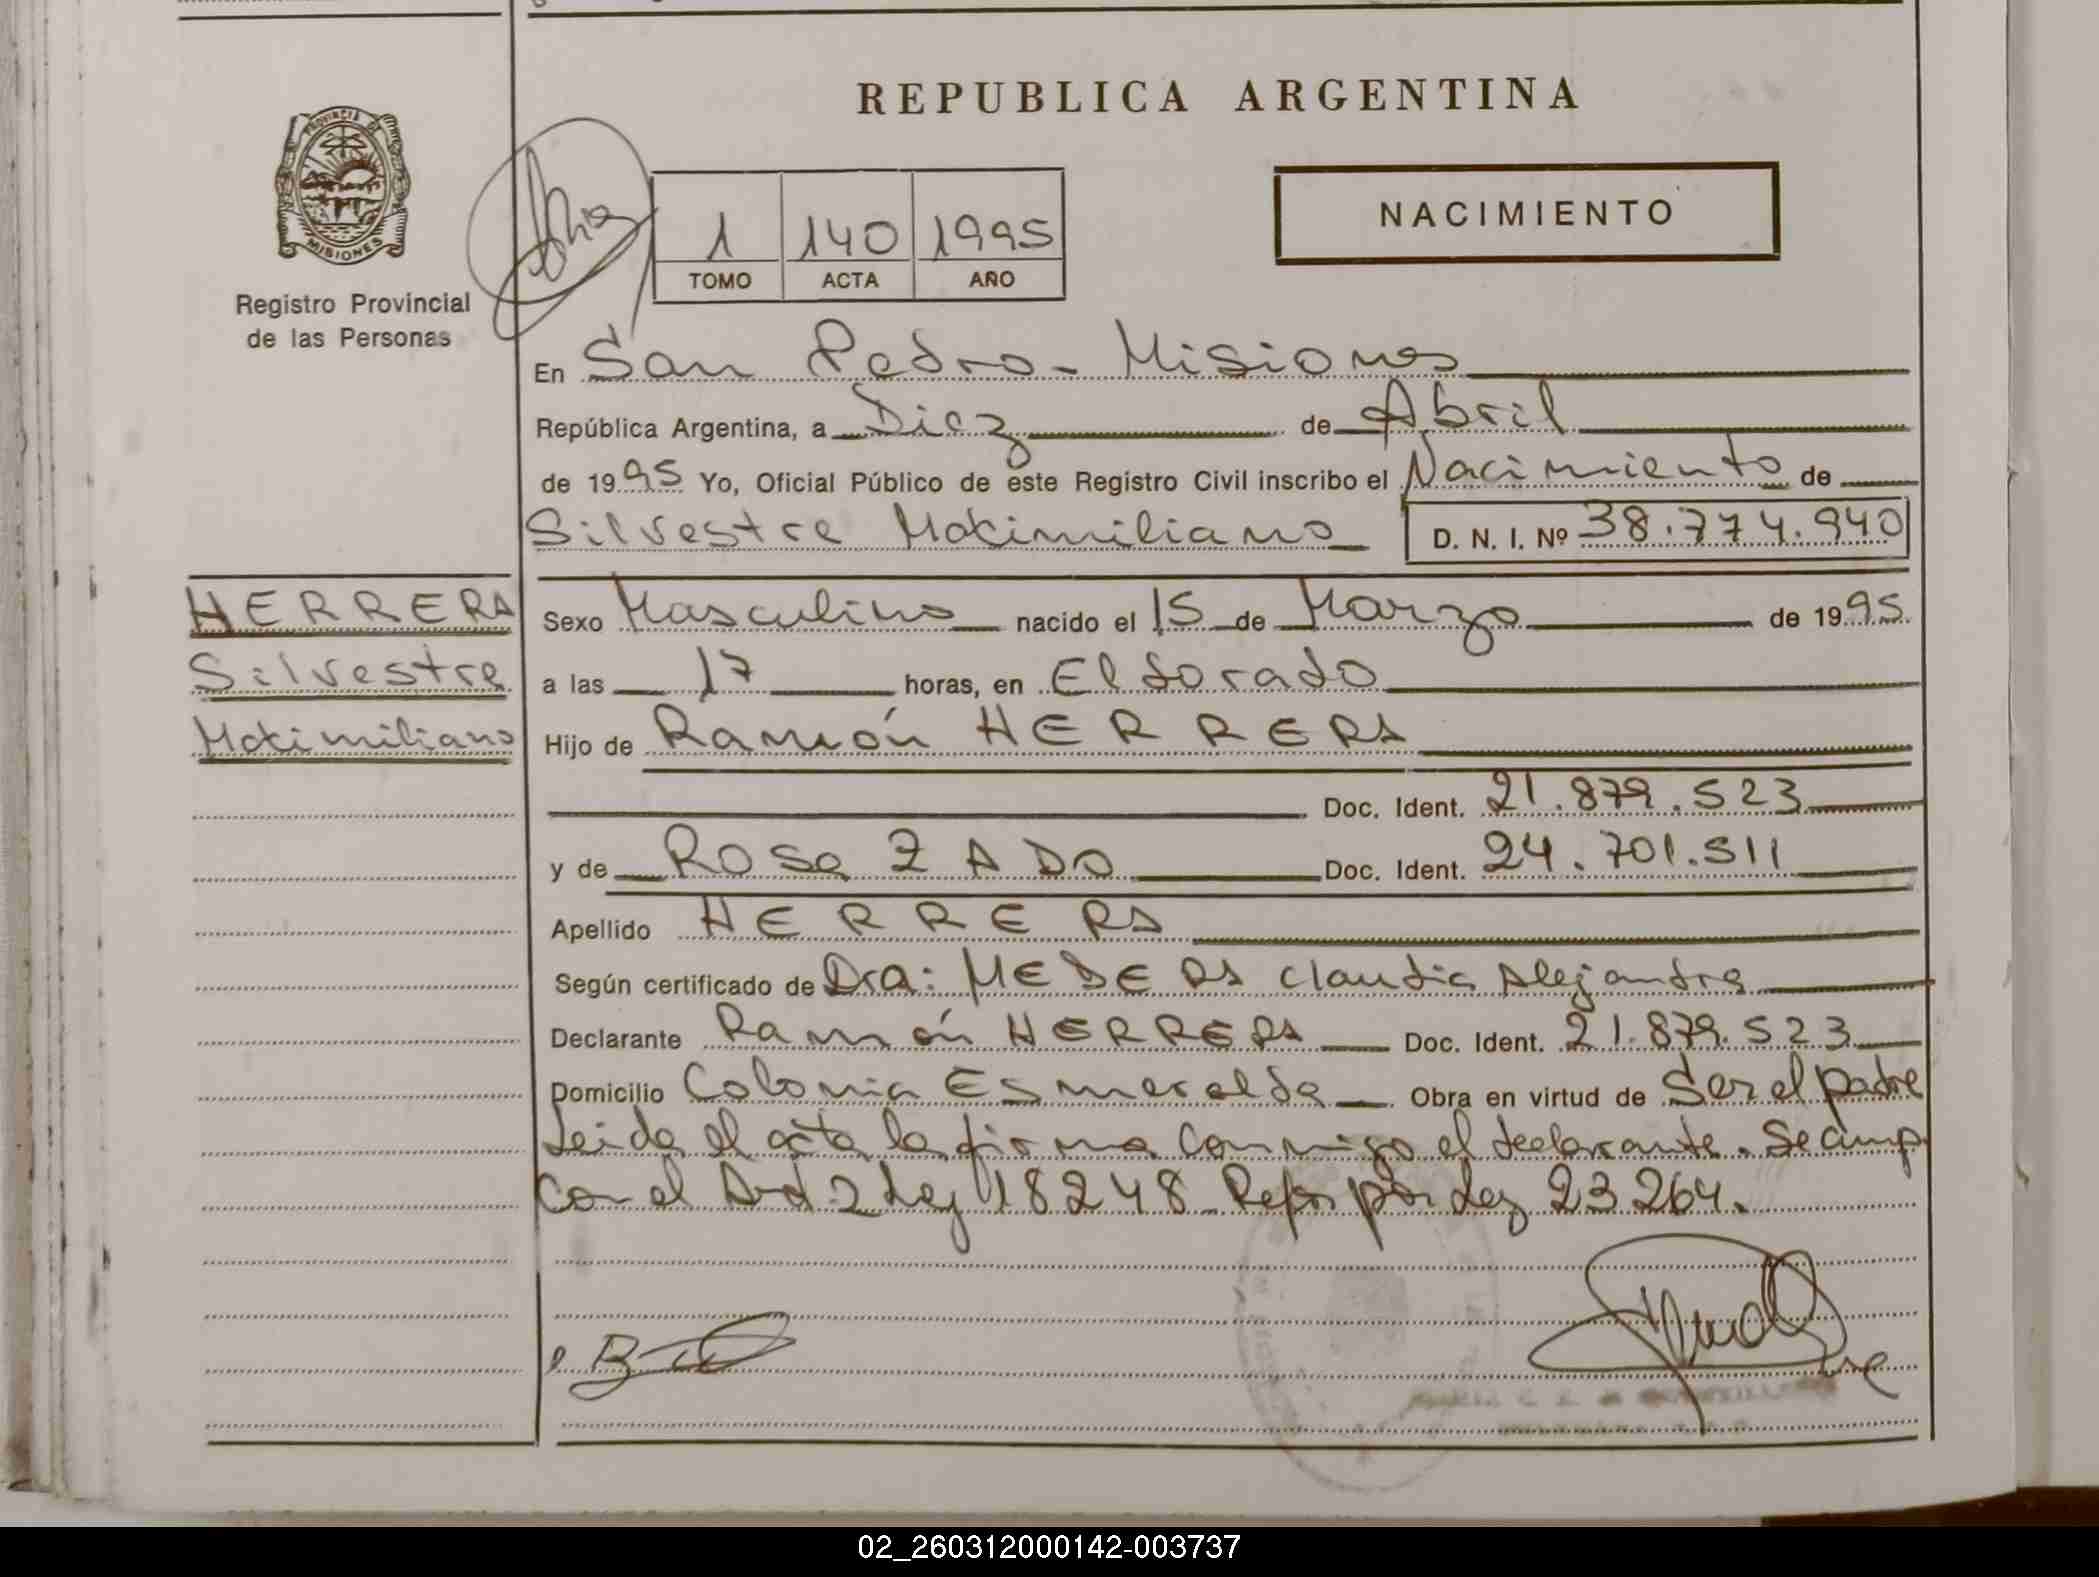 REPUBLICA ARGENTINA
PROVINCIA DE MISIONES
Registro Provincial
de las Personas
1 140 1995
TOMO ACTA AÑO
NACIMIENTO
En San Pedro - Misiones
República Argentina, a Diez de Abril
de 1995 Yo, Oficial Público de este Registro Civil inscribo el Nacimiento de
Silvestre Makimiliano D. N. I. Nº 38.774.940
HERRERA
Silvestre
Makimiliano
Sexo Masculino nacido el 15 de Marzo de 1995
a las 17 horas, en Eldorado
Hijo de Ramón HERRERA
Doc. Ident. 21.879.523
y de Rosa ZADO Doc. Ident. 24.701.511
Apellido HERRERA
Según certificado de Dra: MEDERA Claudia Alejandra
Declarante Ramón HERRERA Doc. Ident. 21.879.523
Domicilio Colonia Esmeralda Obra en virtud de Ser el padre
Leida el acta la firma conmigo el declarante. Se cump
con el Art. 2 Ley 18248 por Ley 23264.
02_260312000142-003737